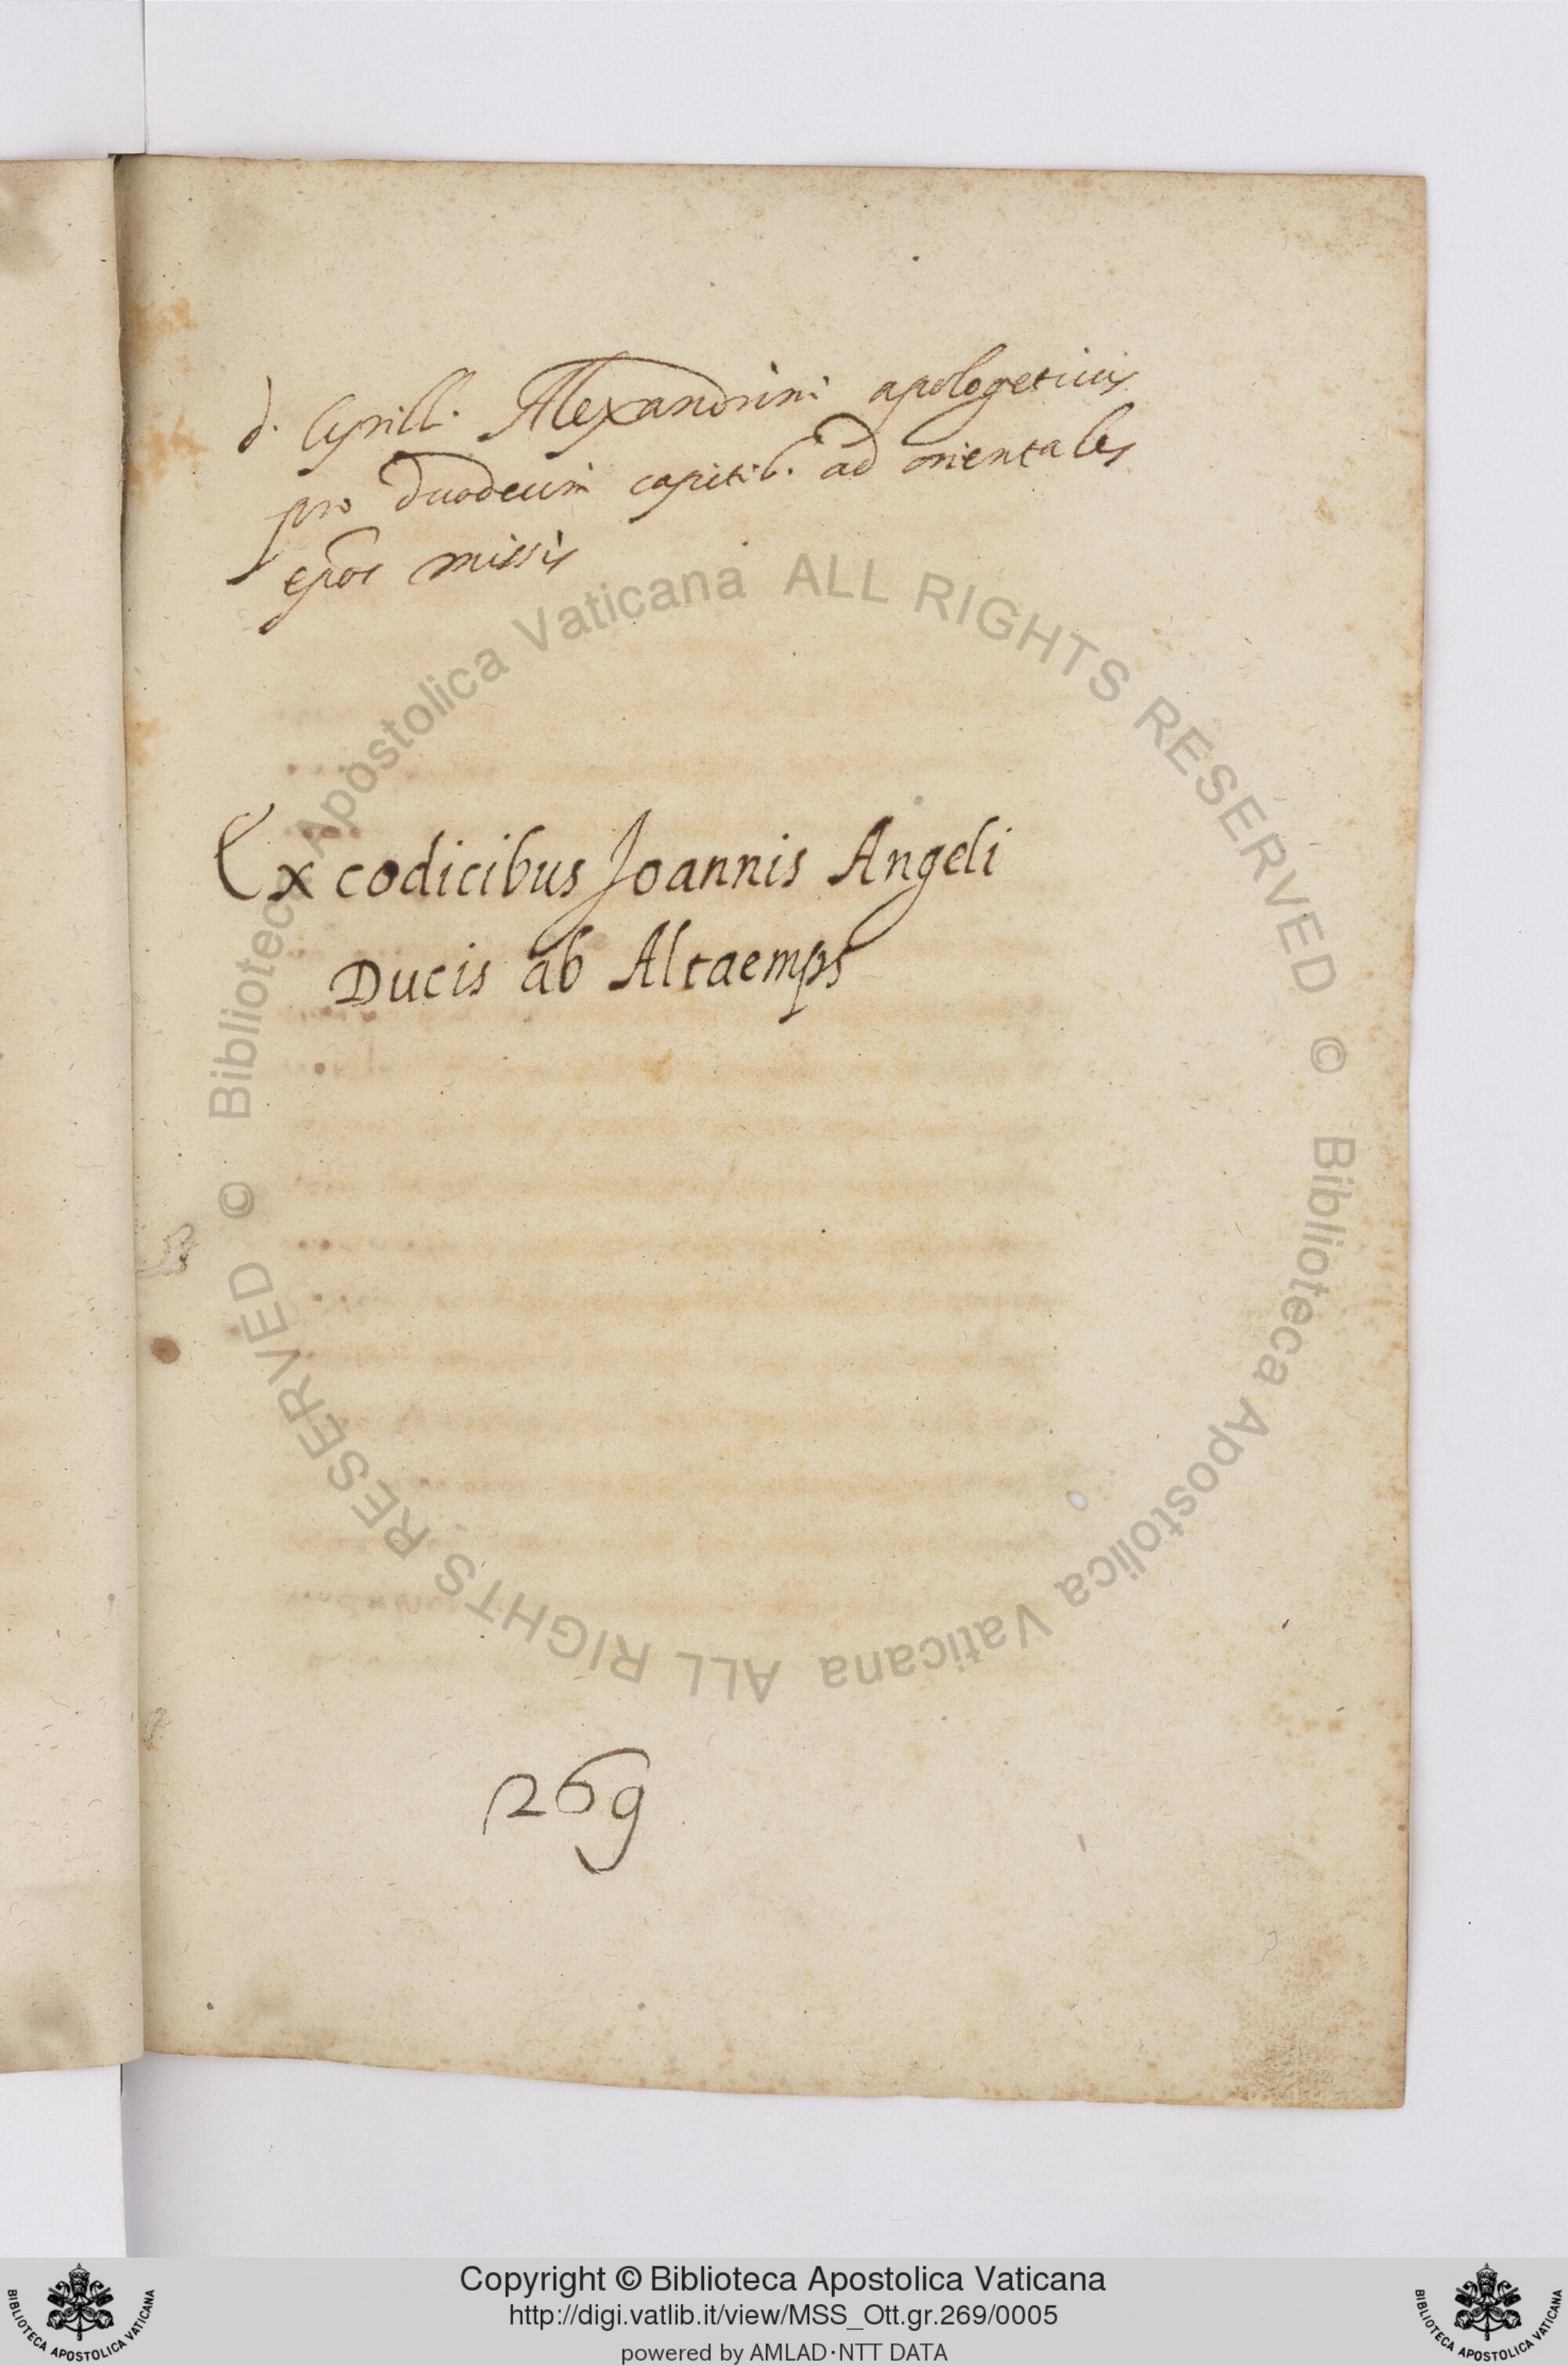 d. Cyrill. Alexandrini apologeticus
pro duodecim capitib. ad orientales
epos missis
Ex codicibus Joannis Angeli
Ducis ab Altaemps
269
© Biblioteca Apostolica Vaticana ALL RIGHTS RESERVED
© Biblioteca Apostolica Vaticana ALL RIGHTS RESERVED
Copyright © Biblioteca Apostolica Vaticana
http://digi.vatlib.it/view/MSS_Ott.gr.269/0005
powered by AMLAD·NTT DATA
BIBLIOTECA APOSTOLICA VATICANA
BIBLIOTECA APOSTOLICA VATICANA